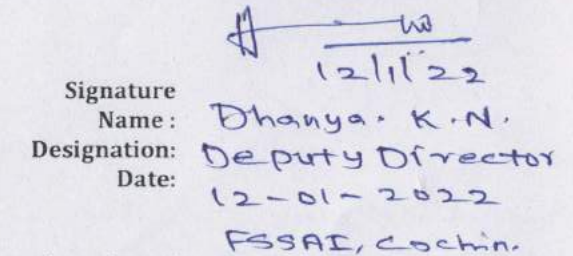 12/1/22
Signature
Name : Dhanya. K.N.
Designation: Deputy Director
Date: 12-01-2022
FSSAI, Cochin.